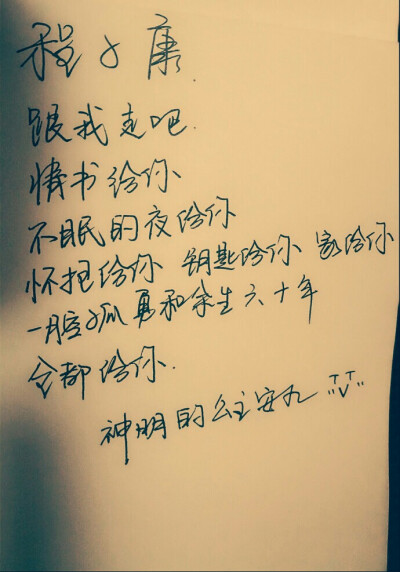 程子康
跟我走吧
情书给你
不眠的夜给你
怀抱给你 钥匙给你 家给你
一腔孤勇和余生六十年
全都给你.
神明的公主安九